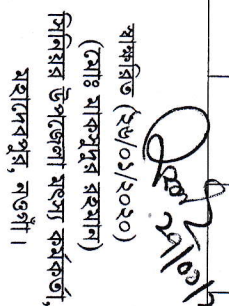 স্বাক্ষরিত (২৮/০১/২০২০)
(মোঃ মাকসুদুর রহমান)
সিনিয়র উপজেলা মৎস্য কর্মকর্তা,
মহাদেবপুর, নওগাঁ।